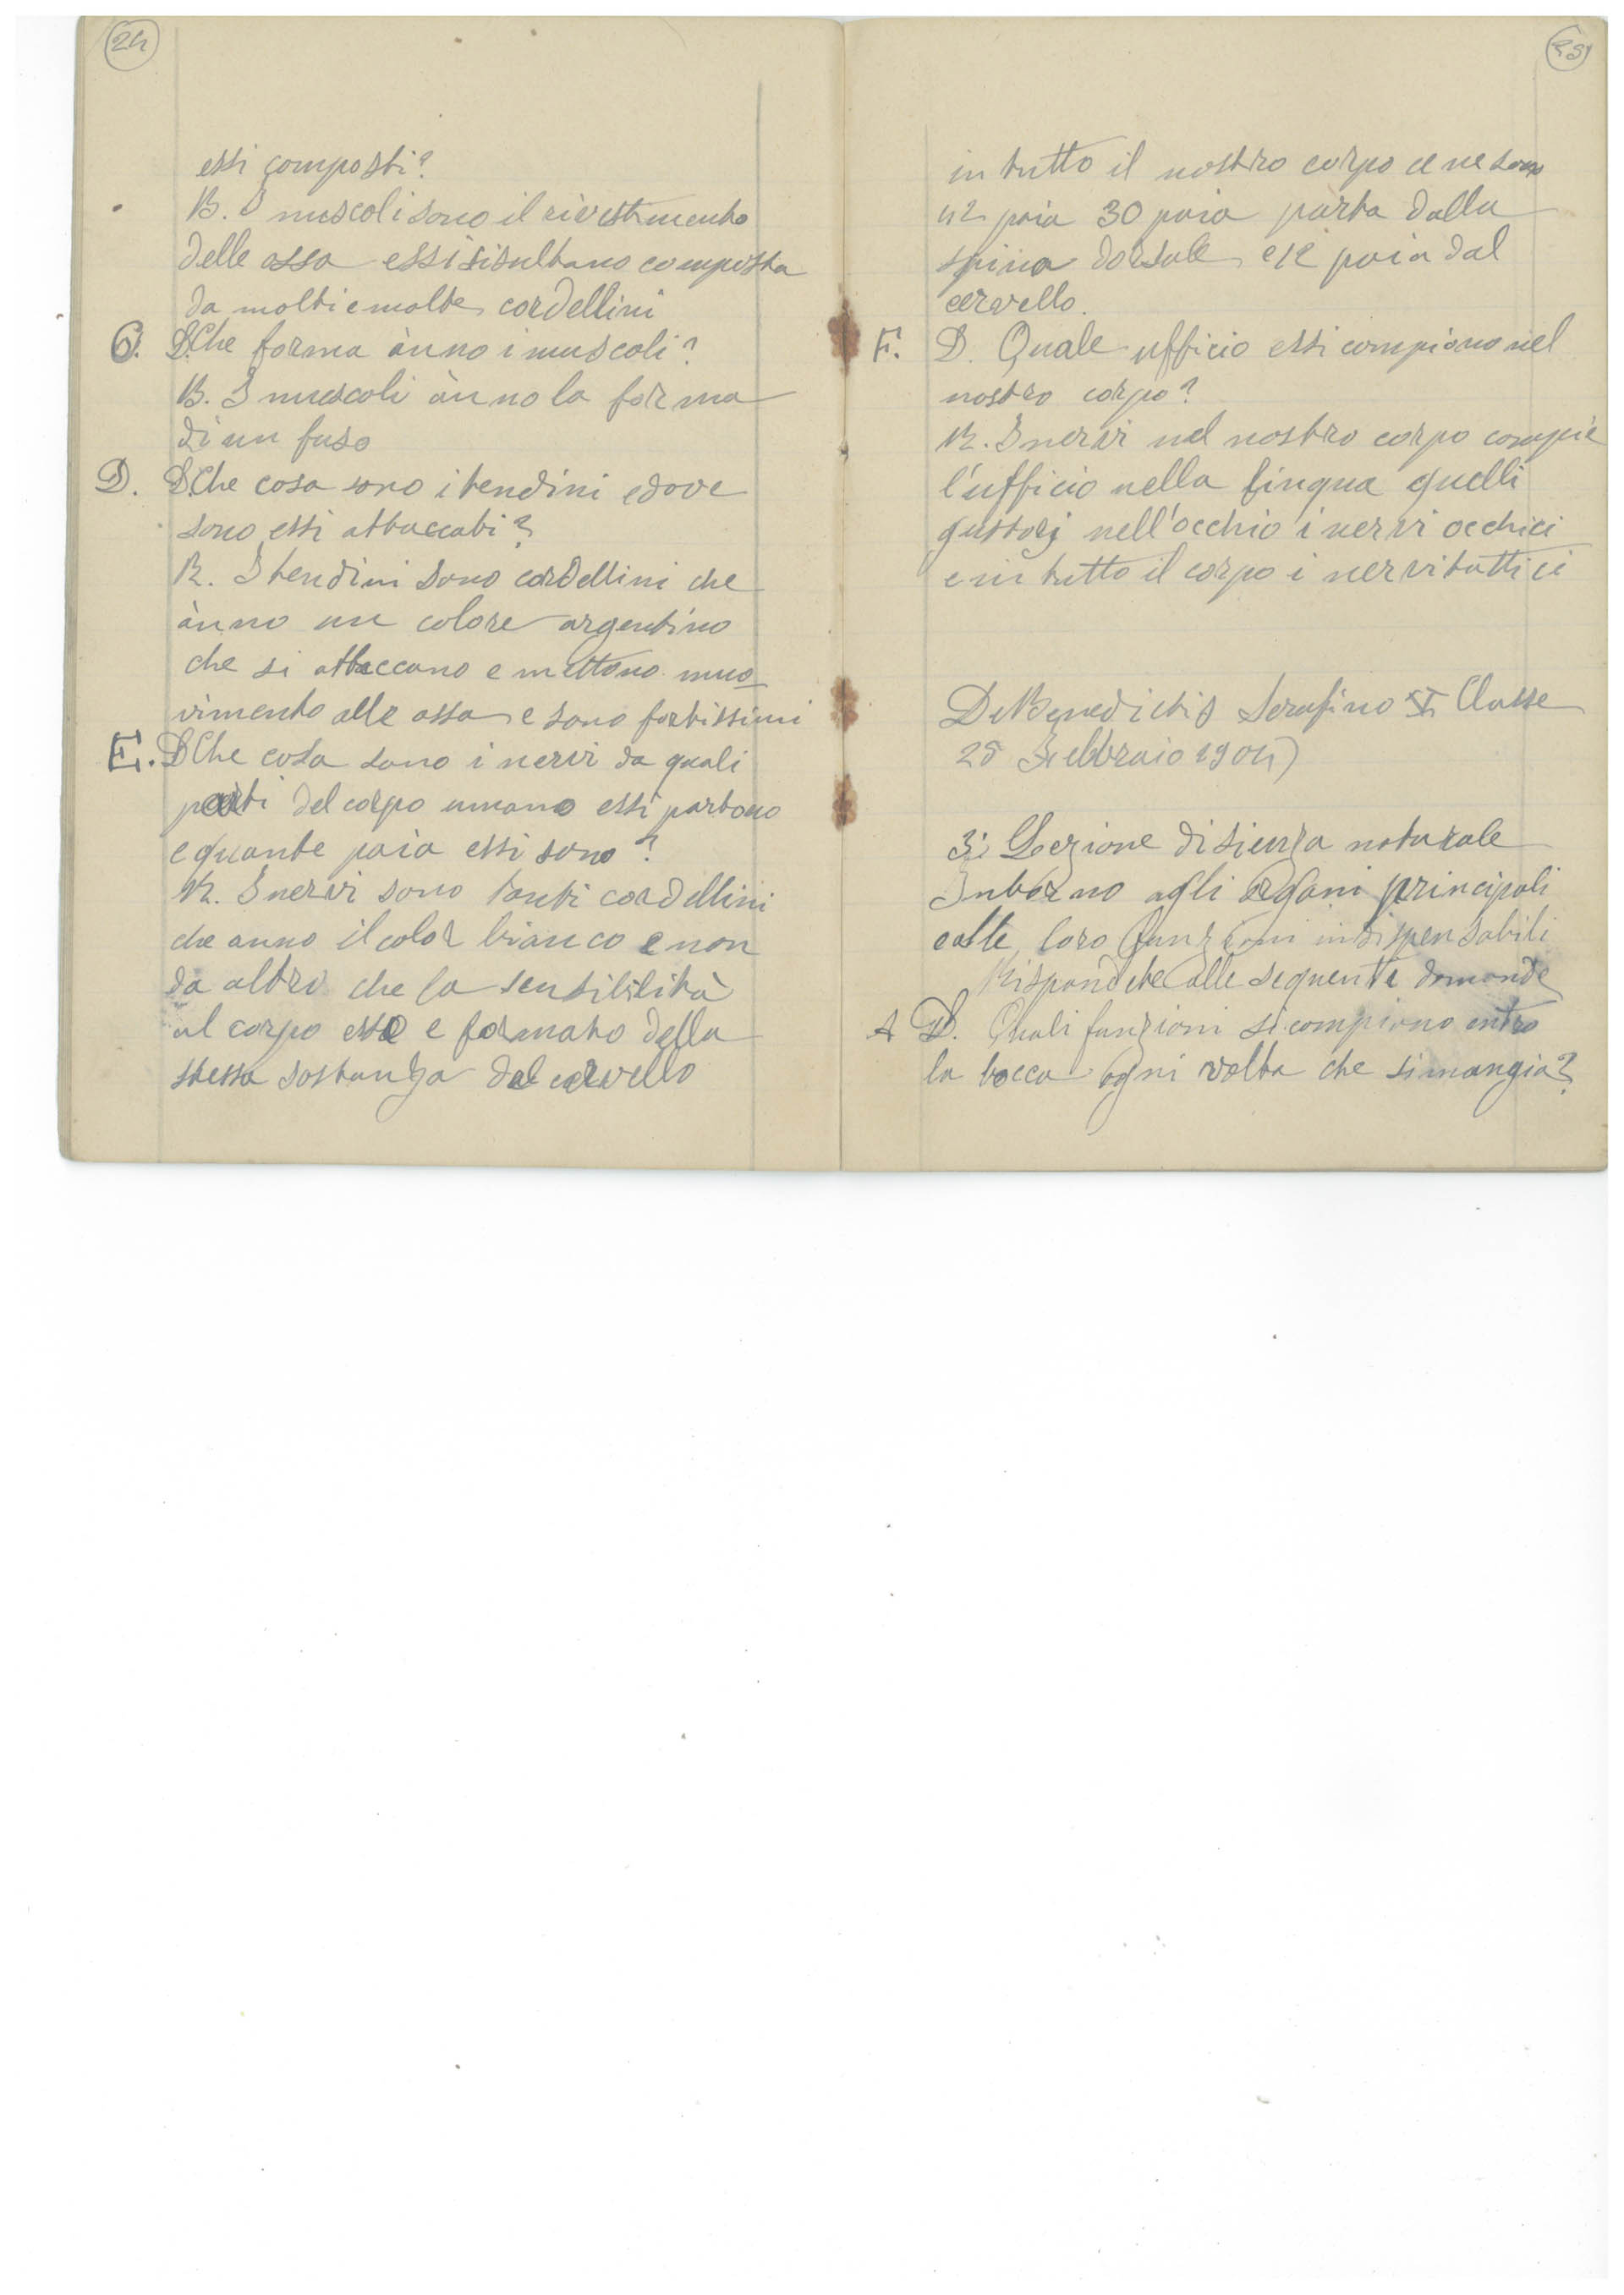 24
essi composti?
R. I muscoli sono il rivestimento
delle ossa essi sisultano composta
da molti e molte cordellini
C. D. Che forma ànno i muscoli?
R. I muscoli ànno la forma
di un fuso
D. D. Che cosa sono i tendini e dove
sono essi attaccati?
R. I tendini sono cordellini che
ànno un colore argentino
che si attaccano e mettono muo
vimento alle ossa e sono fortissimi
E. D Che cosa sono i nervi da quali
parti del corpo umano essi partono
e quante paia essi sono?
R. I nervi sono tanti cordellini
che anno il color bianco e non
da altro che la sensibilità
al corpo esso e formato della
stessa sostanza del cervello
25
in tutto il nostro corpo ce ne sono
42 paia 30 paia parta dalla
spina dorsale e 12 paia dal
cervello.
F. D. Quale ufficio essi compiono nel
nostro corpo?
R. I nervi nel nostro corpo compie
l'ufficio nella lingua quelli
gustori nell'occhio i nervi occhici
e in tutto il corpo i nervi tattici
De Benedictis Serafino Classe
28 Febbraio 1904)
3ª Lezione di sienza naturale
Intorno agli organi principali
e alle loro funzioni indispensabili
Rispondete alle seguente domande
A D. Quali funzioni si compiono entro
la bocca ogni volta che si mangia?